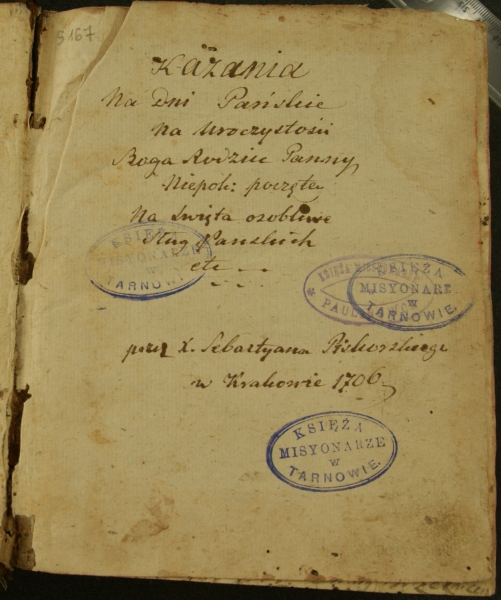 5167
Kazania
Na Dni Pańskie
na Uroczystości
Boga Rodzice Panny
Niepok: poczęte
Na Swięta osobliwe
Sług Panskich
etc
przez X. Sebastyana Piskorskiego
w Krakowie 1706
KSIĘŻA
MISYONARZE
w
TARNOWIE
KSIĘŻA
PAUL
KSIĘŻA
MISYONARZE
w
TARNOWIE.
KSIĘŻA
MISYONARZE
w
TARNOWIE.